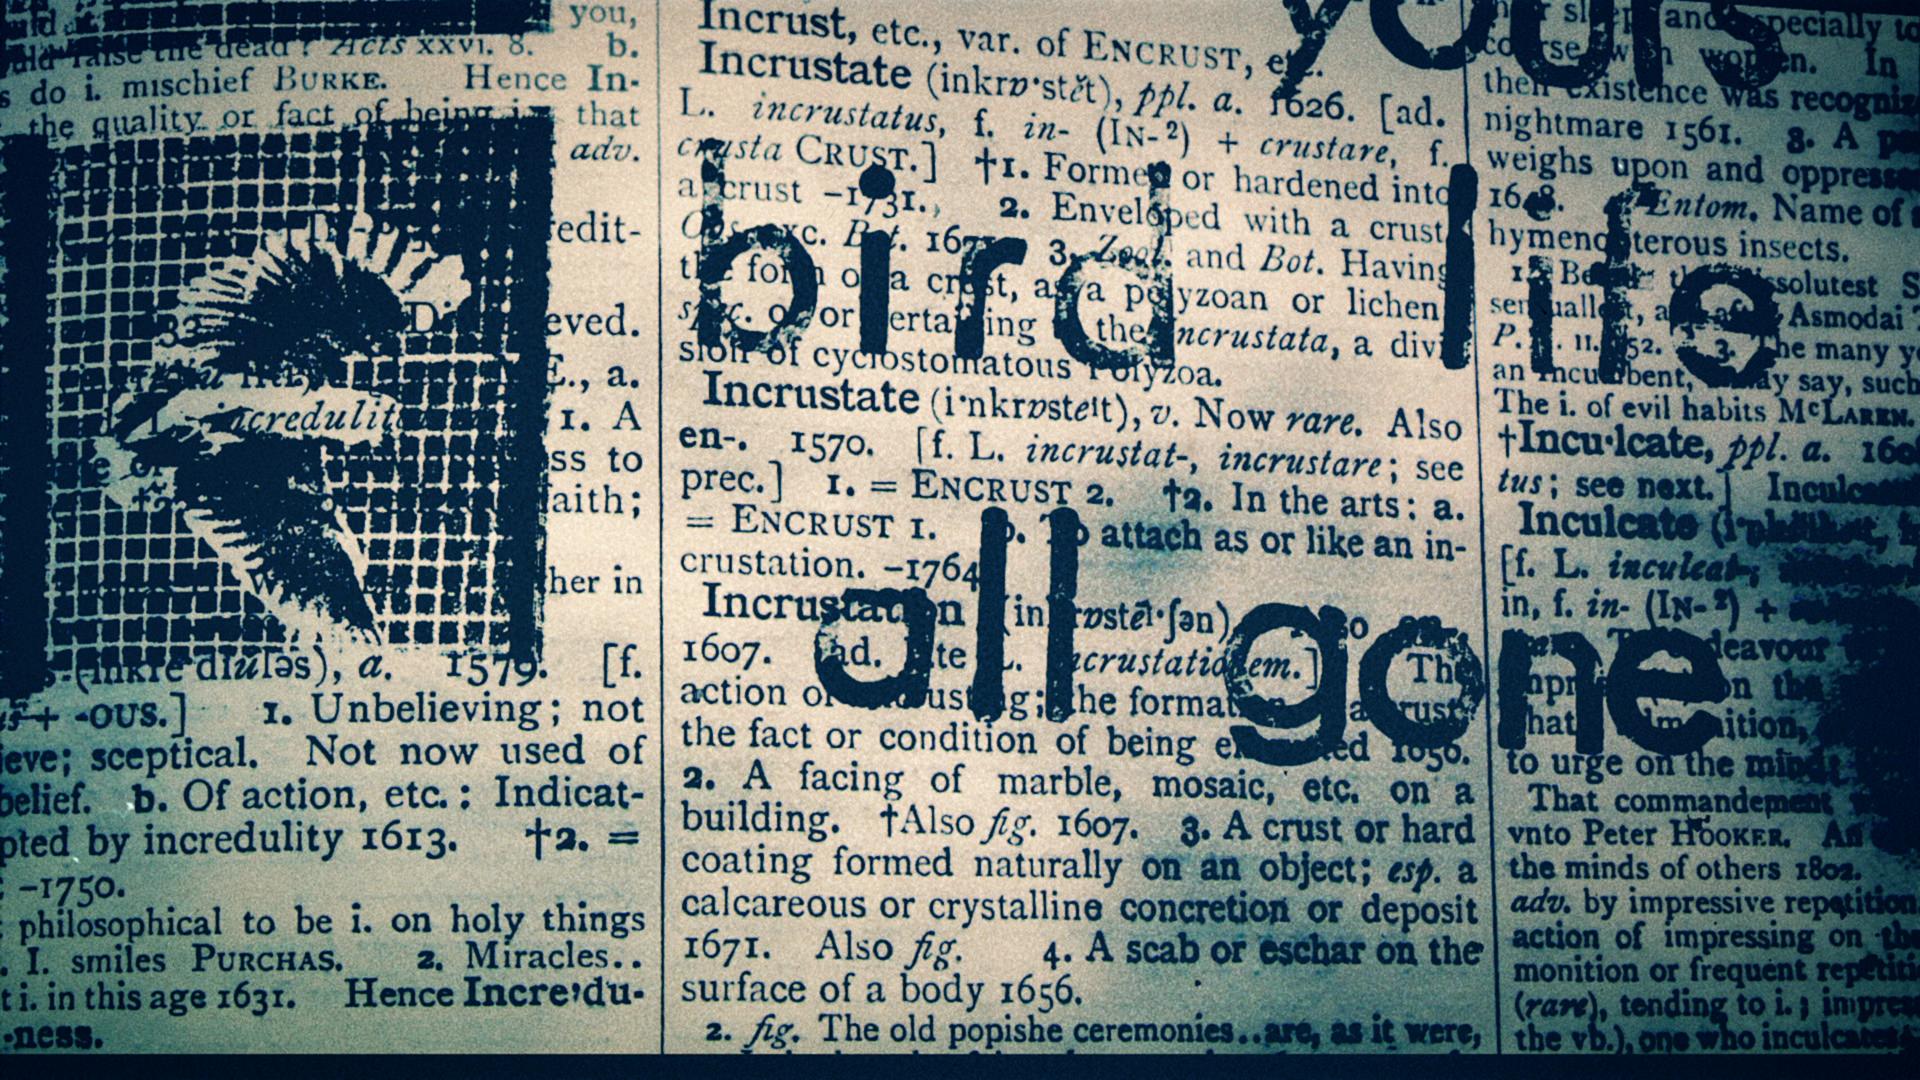 you,
raise the dead? Acts XXVI. 8. b.
s do i. mischief BURKE. Hence In-
the quality or fact of being that
adv.
edit-
eved.
E., a.
incredulit 1. A
ss to
faith;
her in
diŭləs), a. 1579. [f.
+ -OUS.] 1. Unbelieving; not
eve; sceptical. Not now used of
belief. b. Of action, etc.: Indicat-
pted by incredulity 1613. †2. =
-1750.
philosophical to be i. on holy things
. I. smiles PURCHAS. 2. Miracles..
t i. in this age 1631. Hence Incre'du-
-ness.
Incrust, etc., var. of ENCRUST, etc.
Incrustate (inkrɒ·stĕt), ppl. a. 1626. [ad.
L. incrustatus, f. in- (IN-²) + crustare, f.
crusta CRUST.] †1. Formed or hardened into
a crust -1731. 2. Enveloped with a crust.
exc. Bot. 1671 3. Zool. and Bot. Having
the form of a crust, as a polyzoan or lichen
of or pertaining the Incrustata, a divi-
sion of cyclostomatous Polyzoa.
Incrustate (i·nkrɒsteɪt), v. Now rare. Also
en-. 1570. [f. L. incrustat-, incrustare; see
prec.] 1. = ENCRUST 2. †2. In the arts: a.
= ENCRUST 1. b. To attach as or like an in-
crustation. -1764
Incrustation (inkrɒstēɪ·ʃən)
1607. [ad. late L. incrustationem.] The
action of incrusting; the formation a crust
the fact or condition of being encrusted 1656.
2. A facing of marble, mosaic, etc. on a
building. †Also fig. 1607. 3. A crust or hard
coating formed naturally on an object; esp. a
calcareous or crystalline concretion or deposit
1671. Also fig. 4. A scab or eschar on the
surface of a body 1656.
2. fig. The old popishe ceremonies..are, as it were,
and especially to
course with women. In
their existence was recogniz
nightmare 1561. 8. A
weighs upon and oppress
Entom. Name of
hymenopterous insects.
solutest S
Asmodai
P. II. 152. 3. The many y
an incumbent, may say, such
The i. of evil habits McLAREN.
†Incu·lcate, ppl. a. 160
tus; see next.] Inculc
Inculcate
[f. L. inculcat-,
in, f. in- (IN-²) +
deavour
on the
that
to urge on the mind
That commandement
vnto Peter HOOKER. An
the minds of others 1802.
adv. by impressive repetition
action of impressing on the
monition or frequent repetiti
(rare), tending to i.; impres
the vb.), one who inculcates
yours
bird life
all gone